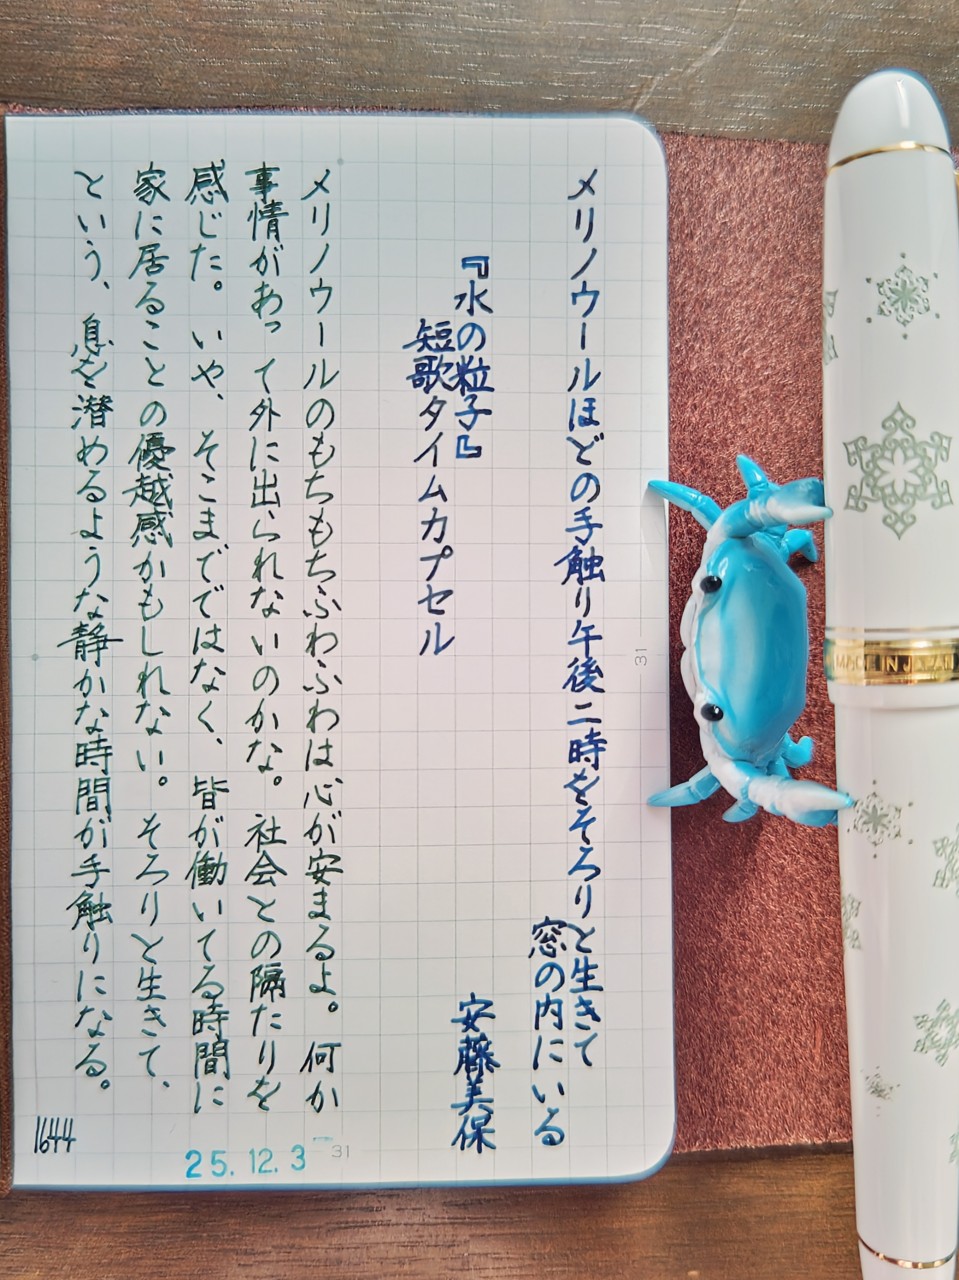 メリノウールほどの手触り午後二時をそろりと生きて
窓の内にいる
『水の粒子』
安藤美保
短歌タイムカプセル
メリノウールのもちもちふわふわは心が安まるよ。何か
事情があって外に出られないのかな。社会との隔たりを
感じた。いや、そこまでではなく、皆が働いてる時間に
家に居ることの優越感かもしれない。そろりと生きて、
という、息を潜めるような静かな時間が手触りになる。
1644
25.12.3
31
31
MADE IN JAPAN